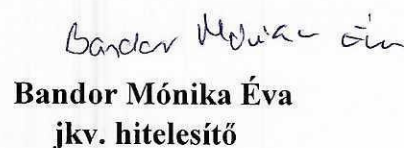 Bandor Mónika Éva
Bandor Mónika Éva
jkv. hitelesítő